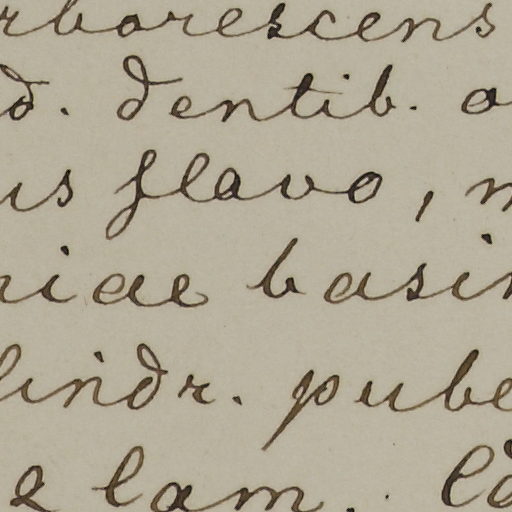 rborescens
d. dentib. a
us flavo, m
niae basin
lindr. pube
& lam. .